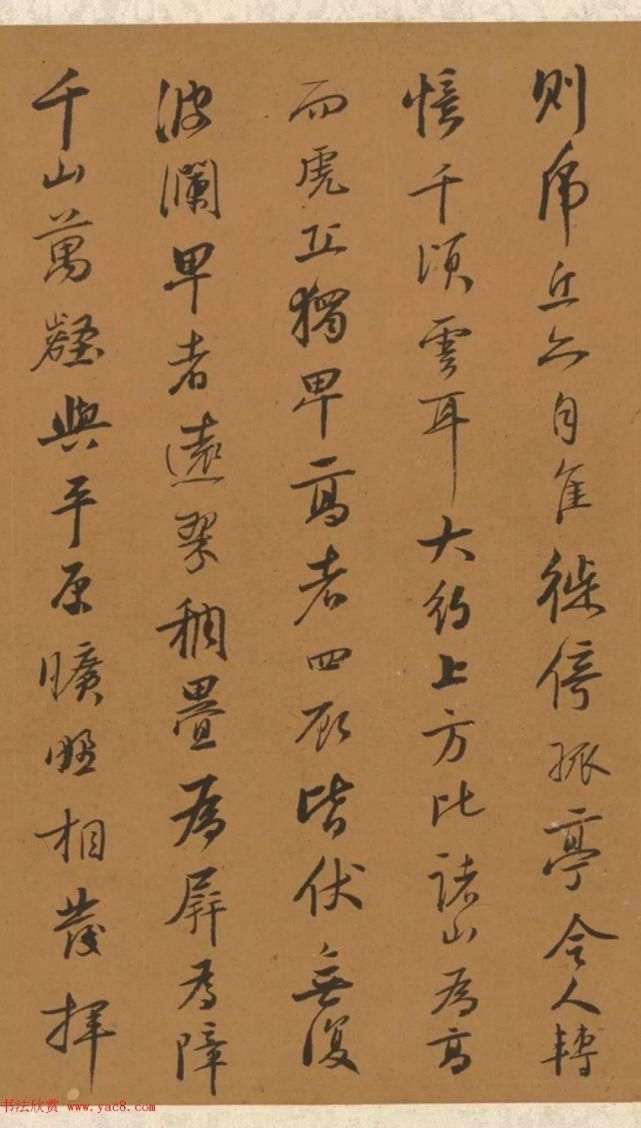 則虎丘亦自佳徙倚孤亭令人轉
憶千頃雲耳大約上方比諸山為高
而虎丘獨卑高者四顧皆伏無復
波瀾卑者遠翠稠疊為屏為障
千山萬壑與平原曠野相發揮
书法欣赏 www.yac8.com